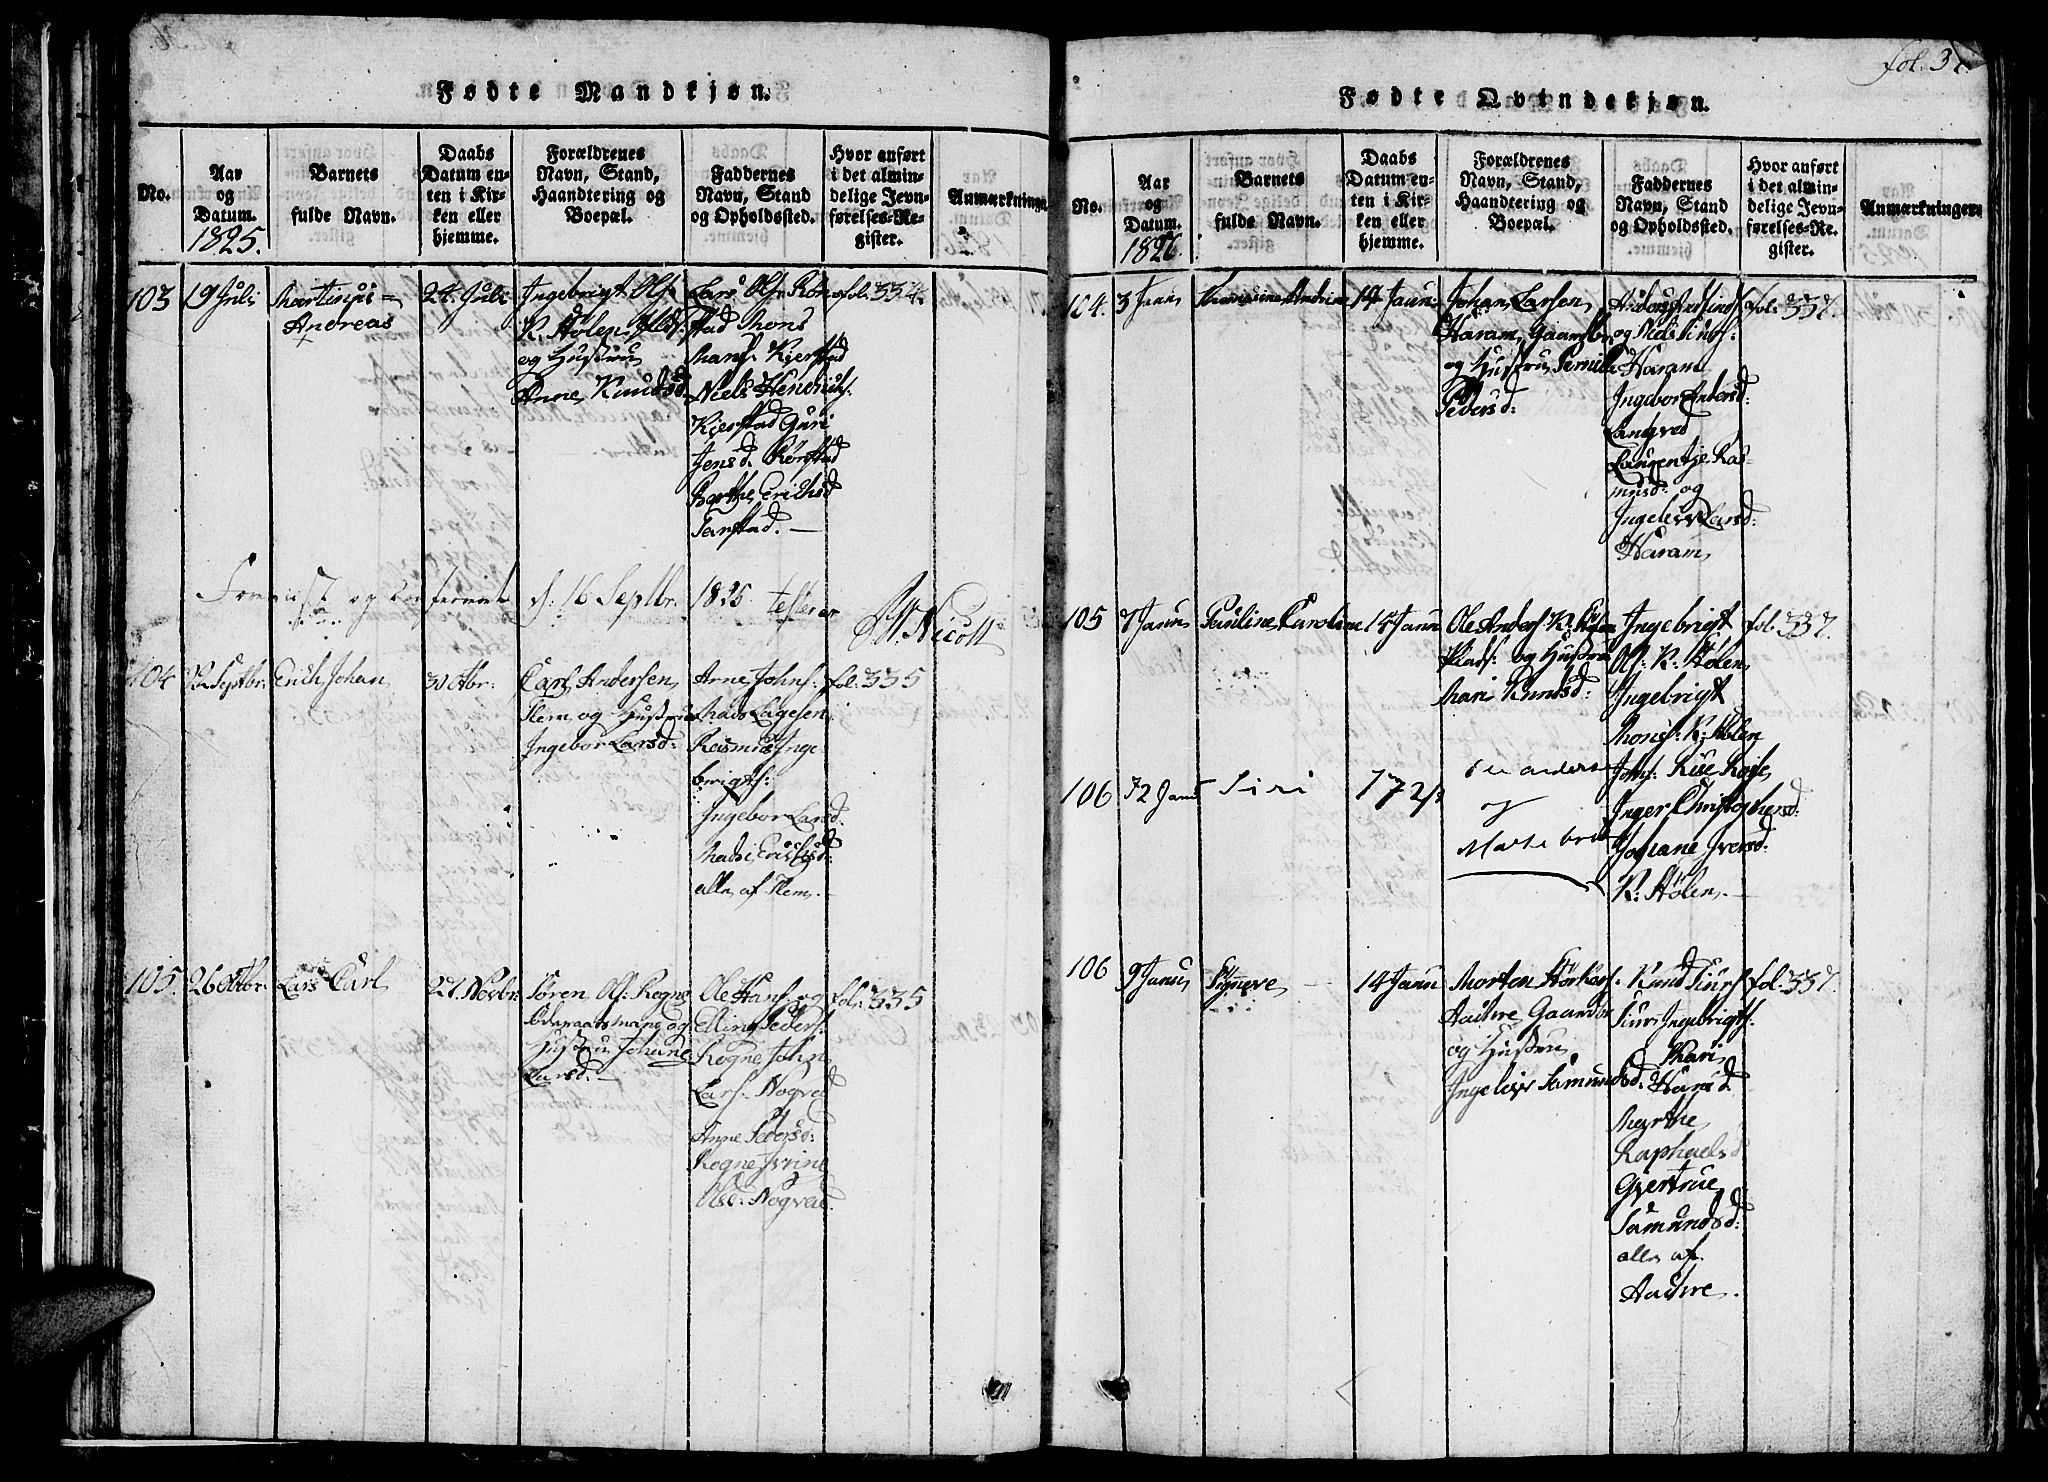 Fødte Mandkjøn.
No.
Aar og Datum. 1825.
Barnets fulde Navn.
Daabs Datum enten i Kirken eller hjemme.
Forældrenes Navn, Stand, Haandtering og Boepæl.
Faddernes Navn, Stand og Opholdssted.
Hvor anført i det almindelige Jevnførelses-Register.
Anmærkninge
103
19 Juli
Martinus
Andreas
24. Juli
Ingebrigt Ols:
K. Hølen
og Hustrue
Anne Knudsd
Lars Ols:
stad Mons
Mons: Kjerstad
Niels Hendrichs:
Kjerstad Guri
Jensd. Rørstad
Berthe Erichsd
Tarstad. —
fol: 334.
og Confereret d: 16 Septbr. 1825 testerer
104
Septbr:
Erich Johan
30 Otbr:
Carl Andersen
Flem og Hustrue
Ingebor Larsd:
Arne Johns:
Mads Lagesen
Rasmus Inge
brigts:
Ingebor Larsd.
alle af Flem. —
fol: 335
105.
26 Otbr:
Lars Carl
27. Novbr:
Søren Ols: Rogne
og
Hustrue Johane
Larsd. —
Ole Hans: og
Elling Peders:
Rogne John
Lars: Nogve
Anne Pedersd:
Rogne Ivrine
Olsd: Nogved.
fol: 335
fol. 37.
Fødte Qvindekjøn.
No.
Aar og Datum. 1826.
Barnets fulde Navn.
Daabs Datum enten i Kirken eller hjemme.
Forældrenes Navn, Stand, Haandtering og Boepæl.
Faddernes Navn, Stand og Opholdssted.
Hvor anført i det almindelige Jevnførelses-Register.
Anmærkninger
104.
3 Janu
Andrine
14 Janu:
Johan Larsen
Haram Gaardbr
og Hustrue Pernille
Pedersd:
og Nils
Haram
Ingebor Endersd:
Langved
Laurentje Ras-
musd: og
Ingeliv Larsd:
Haram
fol: 337.
105
7 Janu
Pauline Caroline
14 Janu
Ole Anders: K: Hølen
Plads: og Hustrue
Mari Knudsd:
Ingebrigt
Ols: K: Hølen
Ingebrigt
Mons: K: Hølen
Inger Christophersd:
Johane Iversd:
K: Hølen. —
fol: 337.
106
12 Janu
Siri
172
Ole anders
og
Marte
106
9 Janu
Synneve
14 Janu
Morten
Aachre Gaardbr
og Hustrue
Ingeliv Samundsd:
Knud Siurs:
Siur Ingebrigts:
Mari
Harid
Marthe
Raphaelsd
Gjertrue
Samundsd:
alle af
Aachre.
fol: 337.